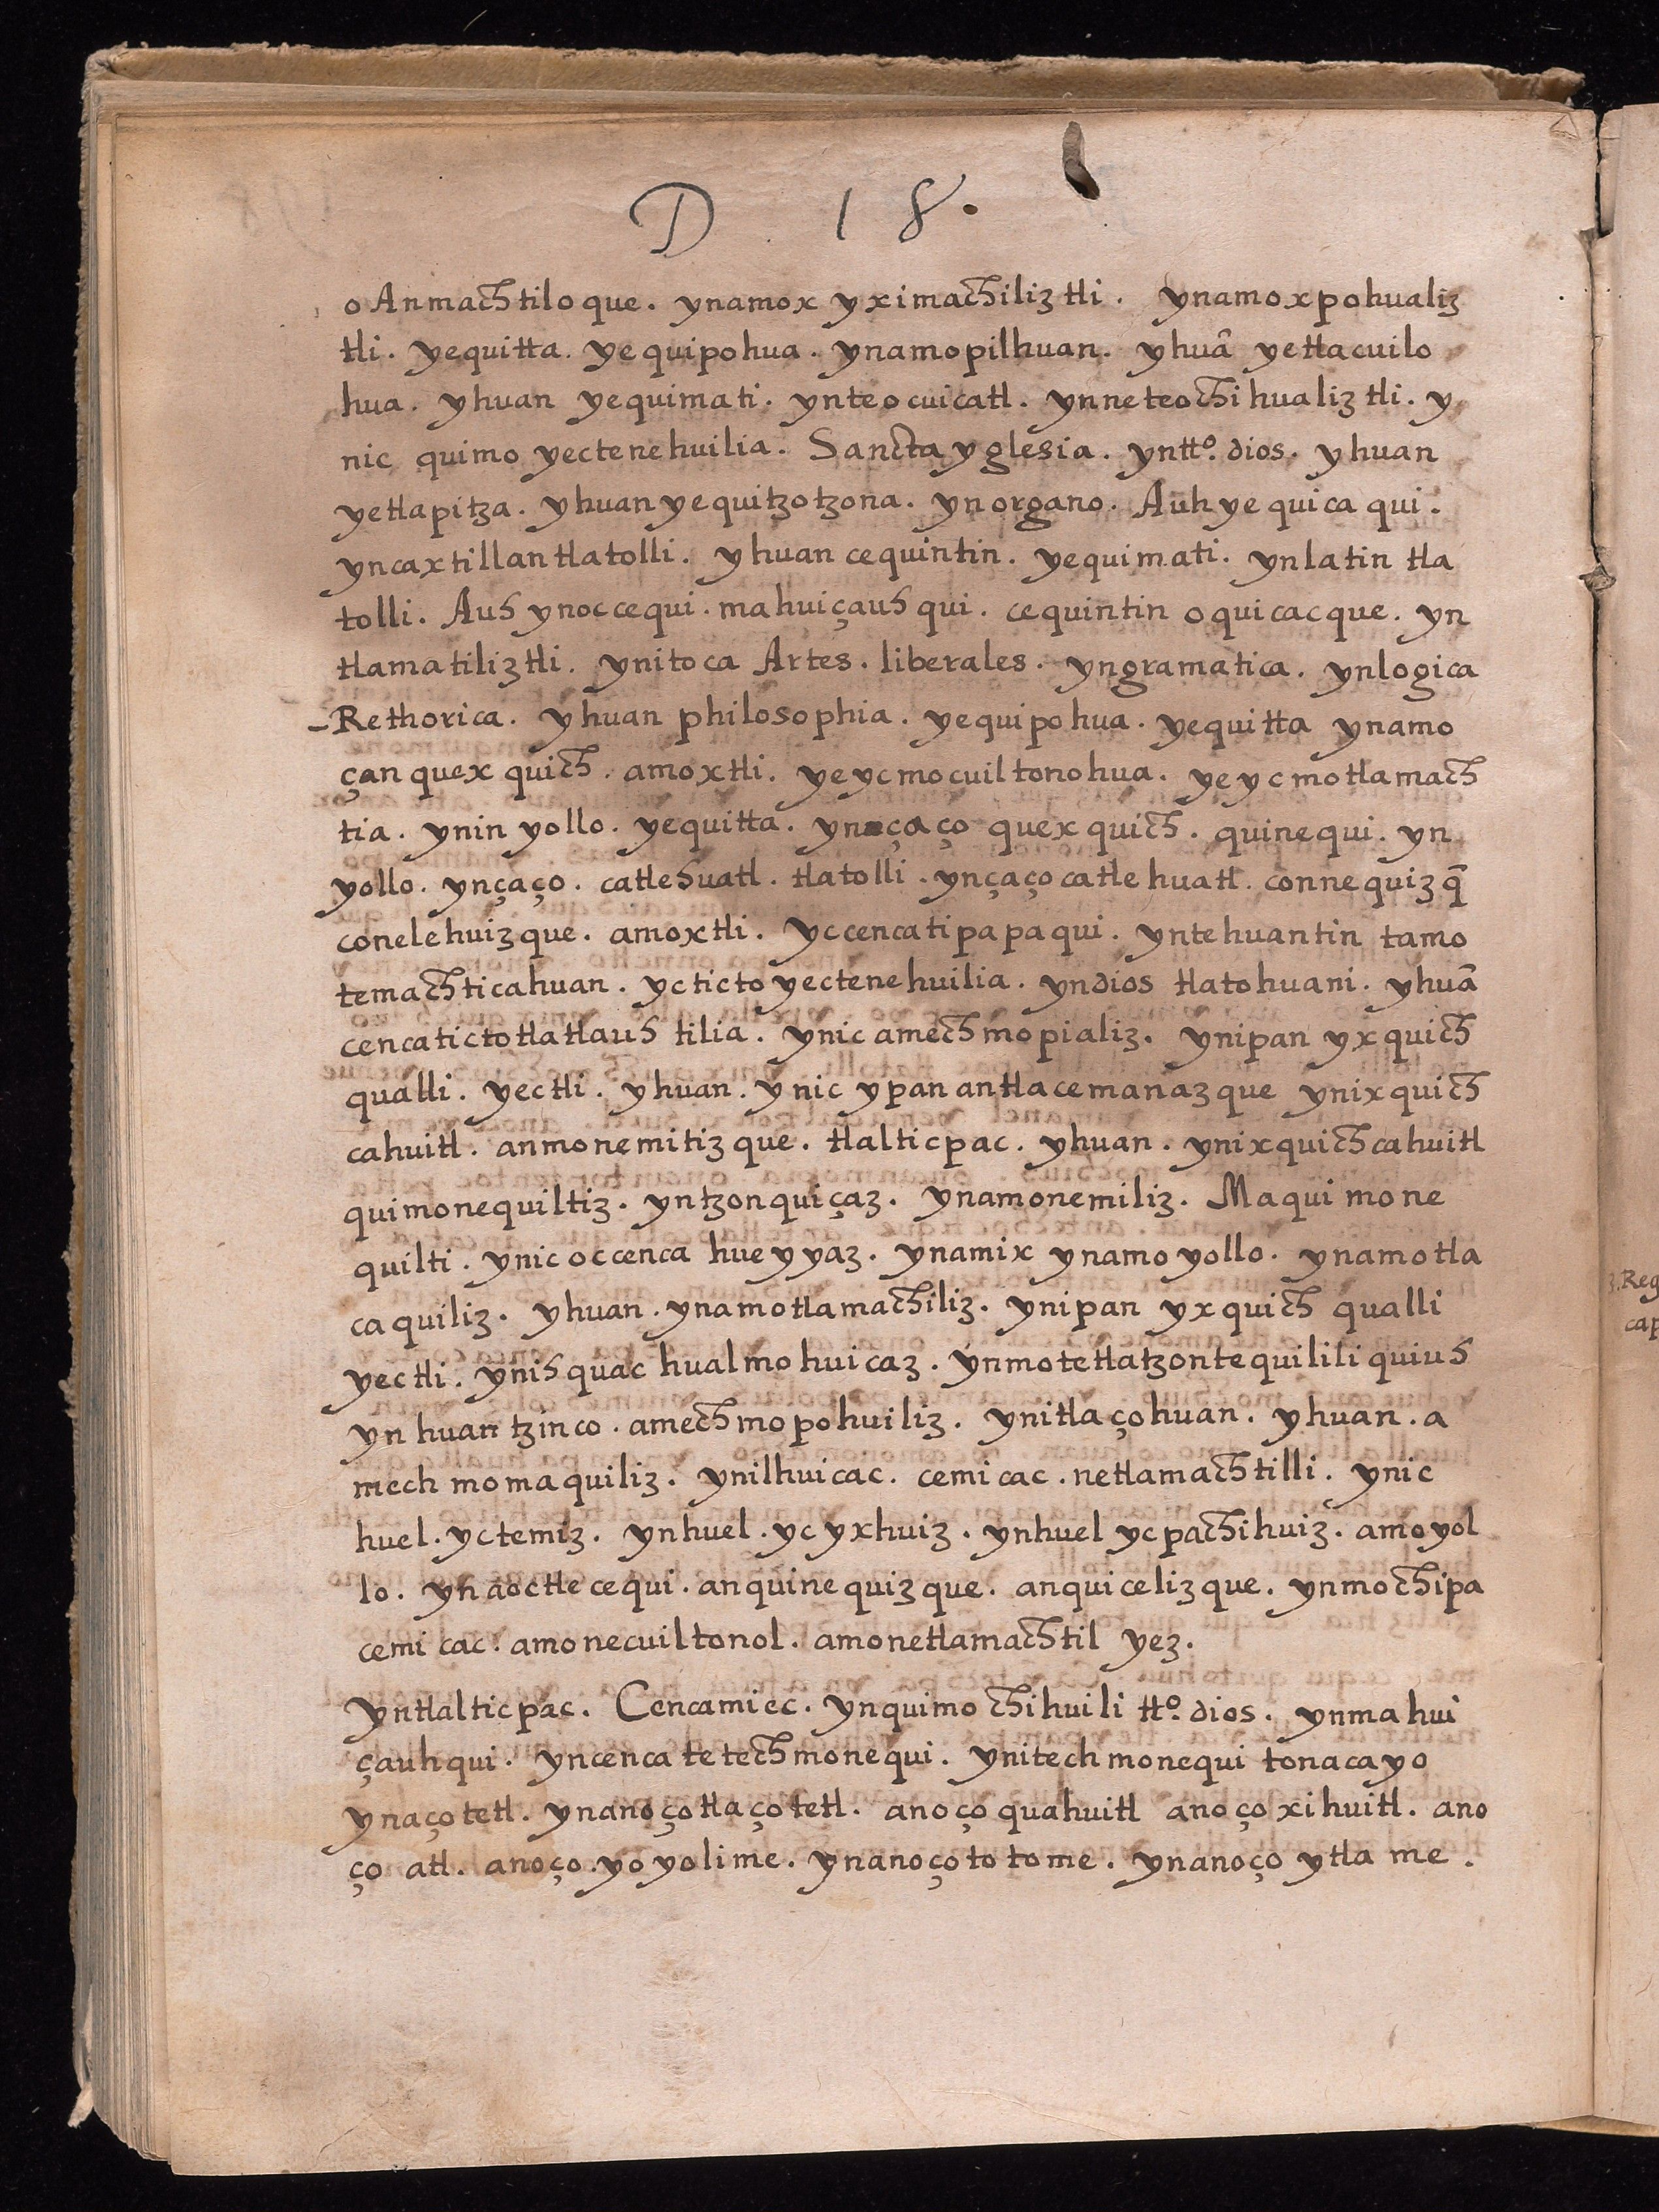 D 18.
oAnmachtiloque. ynamox yximachiliztli. ynamoxpohualiz
tli. yequitta. yequipohua. ynamopilhuan. yhuā yetlacuilo
hua. yhuan yequimati. ynteocuicatl. ynneteochihualiztli. y
nic quimo yectenehuilia. Sancta yglesia. yntto. dios. yhuan
yetlapitza. yhuan yequitzotzona. ynorgano. Auh yequicaqui.
yncaxtillantlatolli. yhuan cequintin. yequimati. ynlatin tla
tolli. Auh ynoccequi. mahuiçauhqui. cequintin oquicacque. yn
tlamatiliztli. ynitoca Artes. liberales. yngramatica. ynlogica
-Rethorica. yhuan philosophia. yequipohua. yequitta ynamo
çan quexquich. amoxtli. yeycmocuiltonohua. yeycmotlamach
tia. ynin yollo. yequitta. ynçaço quexquich. quinequi. yn
yollo. ynçaço. catlehuatl. tlatolli. ynçaçocatlehuatl. connequizq̄
conelehuizque. amoxtli. yccencatipapaqui. yntehuantin tamo
temachticahuan. yctictoyectenehuilia. yndios tlatohuani. yhuā
cencatictotlatlauhtilia. ynic amechmopializ. ynipan yxquich
qualli. yectli. yhuan. ynic ypan antlacemanazque ynixquich
cahuitl. anmonemitizque. tlalticpac. yhuan. ynixquichcahuitl
quimonequiltiz. yntzonquiçaz. ynamonemiliz. Maquimone
quilti. ynic occenca hueyyaz. ynamix ynamoyollo. ynamotla
caquiliz. yhuan. ynamotlamachiliz. ynipan yxquich qualli
yectli. ynihquac hualmohuicaz. ynmotetlatzontequililiquiuh
ynhuantzinco. amechmopohuiliz. ynitlaçohuan. yhuan. a
mech momaquiliz. ynilhuicac. cemicac. netlamachtilli. ynic
huel. yctemiz. ynhuel. yc yxhuiz. ynhuel ycpachihuiz. amoyol
lo. yn aoctlecequi. anquinequizque. anquicelizque. ynmochipa
cemicac. amonecuiltonol. amonetlamachtil yez.
Yntlalticpac. Cencamiec. ynquimochihuili tto. dios. ynmahui
çauhqui. yncenca tetechmonequi. ynitechmonequi tonacayo
ynaçotetl. ynanoçotlaçotetl. anoçoquahuitl anoçoxihuitl. ano
ço atl. anoço.yoyolime. ynanoçototome. ynanoço ytla me.
3.Reg
cap